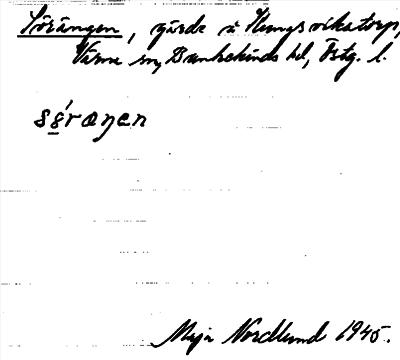 Sörängen, gärde å Hungsvikatorp,
Värna sn, Bankekinds hd, Östg. l.
sǿ̱ræŋen
Maja Nordlund 1945.